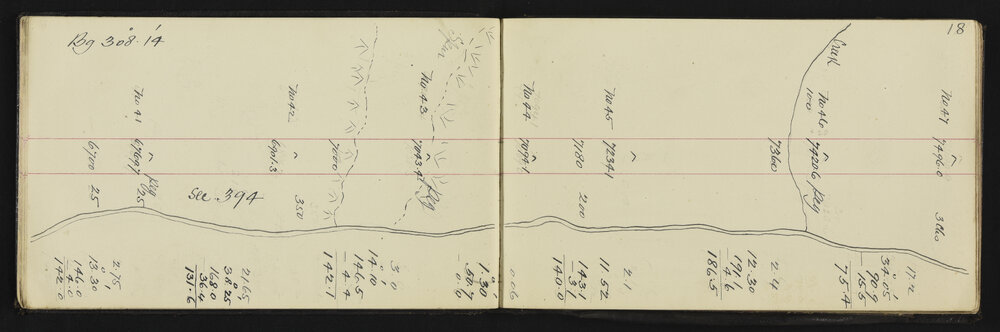 18
Bg 308.14
No 41
67697
Peg
025
67700
25
No 42
6901.3
350
See .394
7000
No 43
70434
Peg
No 44
7094.1
7180
200
No 45
7234.1
73600
No 46
100
74206
Peg
Creek
No 47
7496.0
3160
2.75
13.30
146.0
4.0
142.0
2.65
38.25
168.0
36.4
131.6
3.0
14.10
146.5
- 4.4
142.1
1.30
.50.7
- 0.6
0.06
2.1
11.52
143.1
- 3.1
140.0
2.4
12.30
191.1
- 4.6
186.5
1.72
34.05
90.9
15.5
75.4